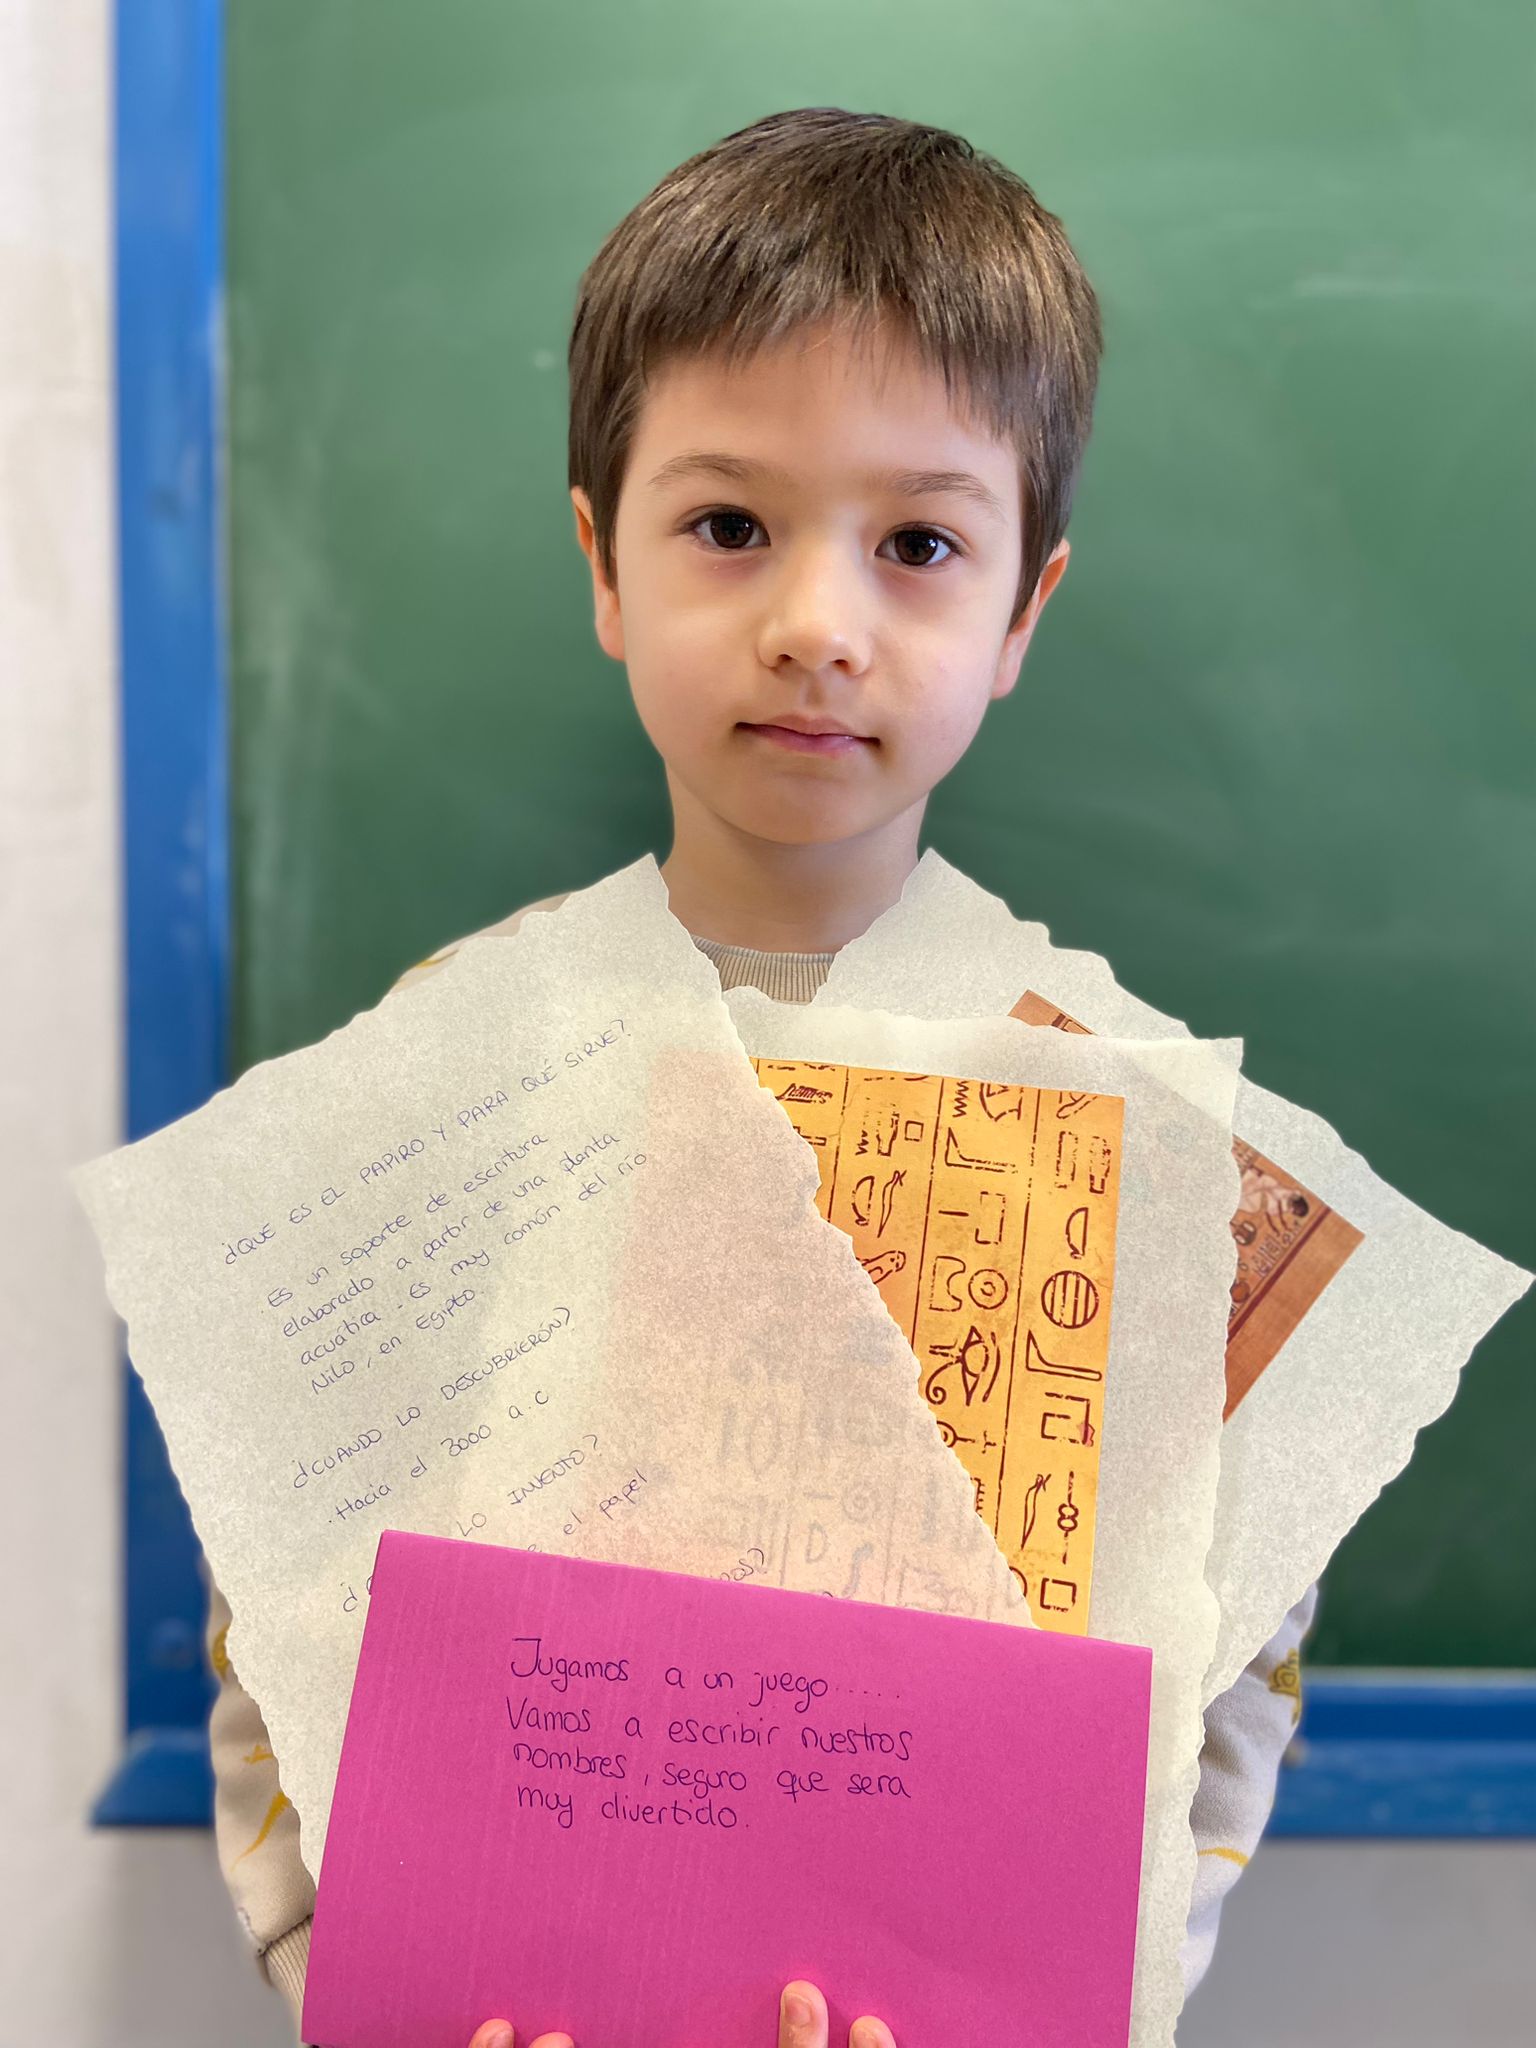 ¿QUE ES EL PAPIRO Y PARA QUÉ SIRVE?
. ES un soporte de escritura
elaborado a partir de una planta
acuática - ES muy común del río
NiLO, en Egipto.
¿CUANDO LO DESCUBRIERÓN?
. Hacia el 3000 a.C
LO INVENTO?
el papel
Jugamos a un juego.....
Vamos a escribir nuestros
nombres, seguro que sera
muy divertido.